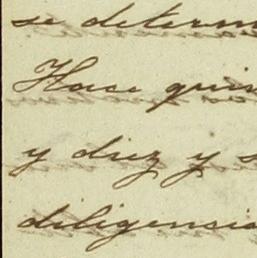 se determ
Hace quin
y diez y s
diligencia